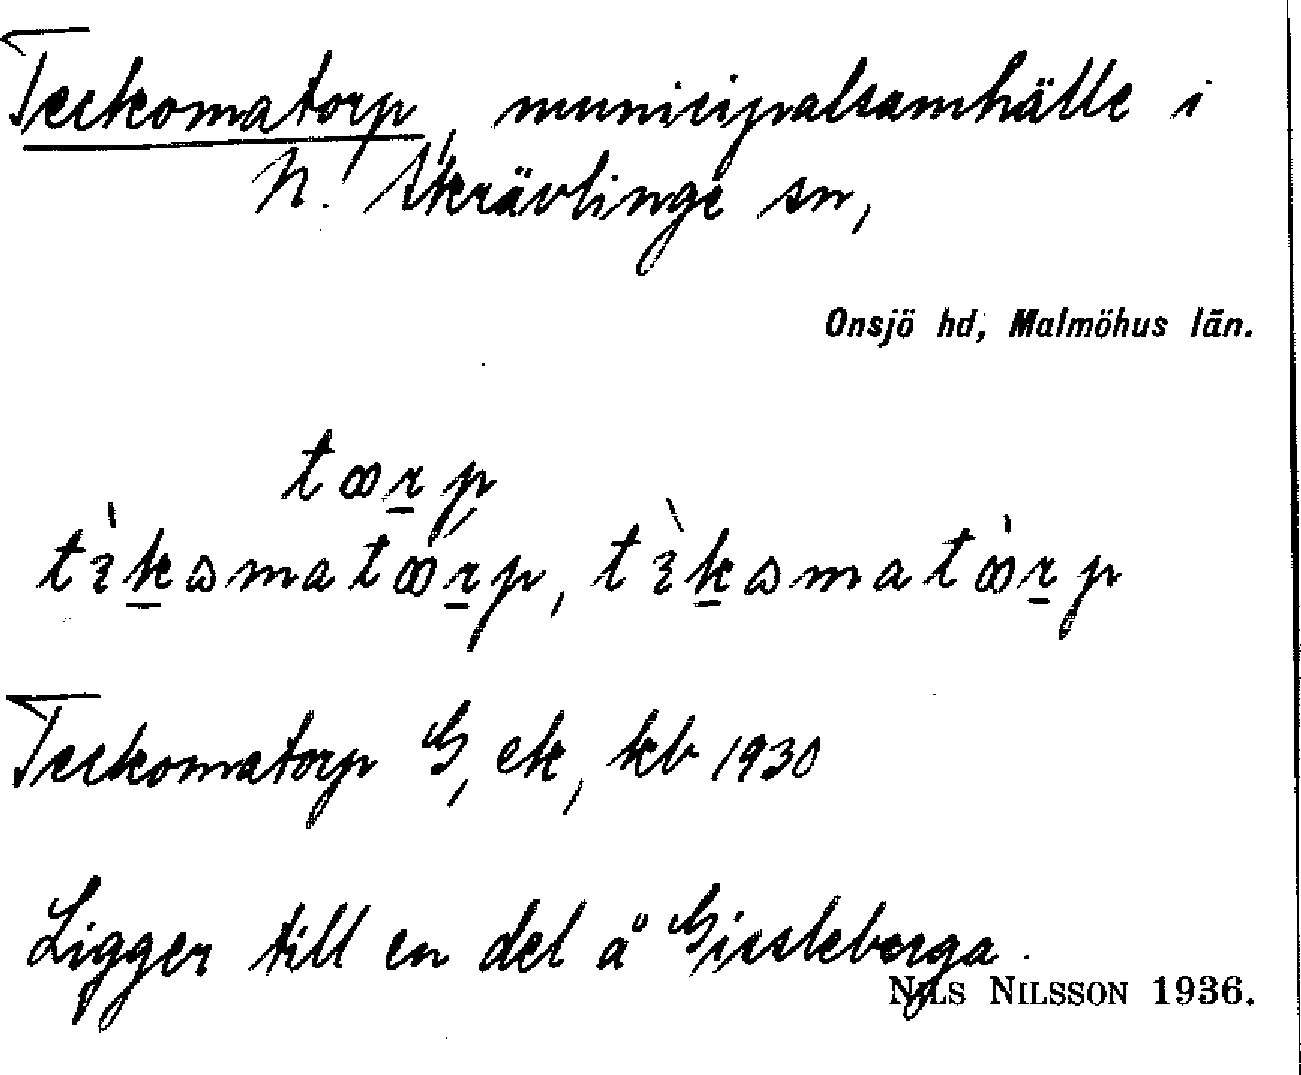 Teckomatorp, municipalsamhälle i
N. Skrävlinge sn,
Onsjö hd, Malmöhus län.
Teckomatorp G, ek, kb 1930
Ligger till en del å Gissleberga.
NILS NILSSON 1936.